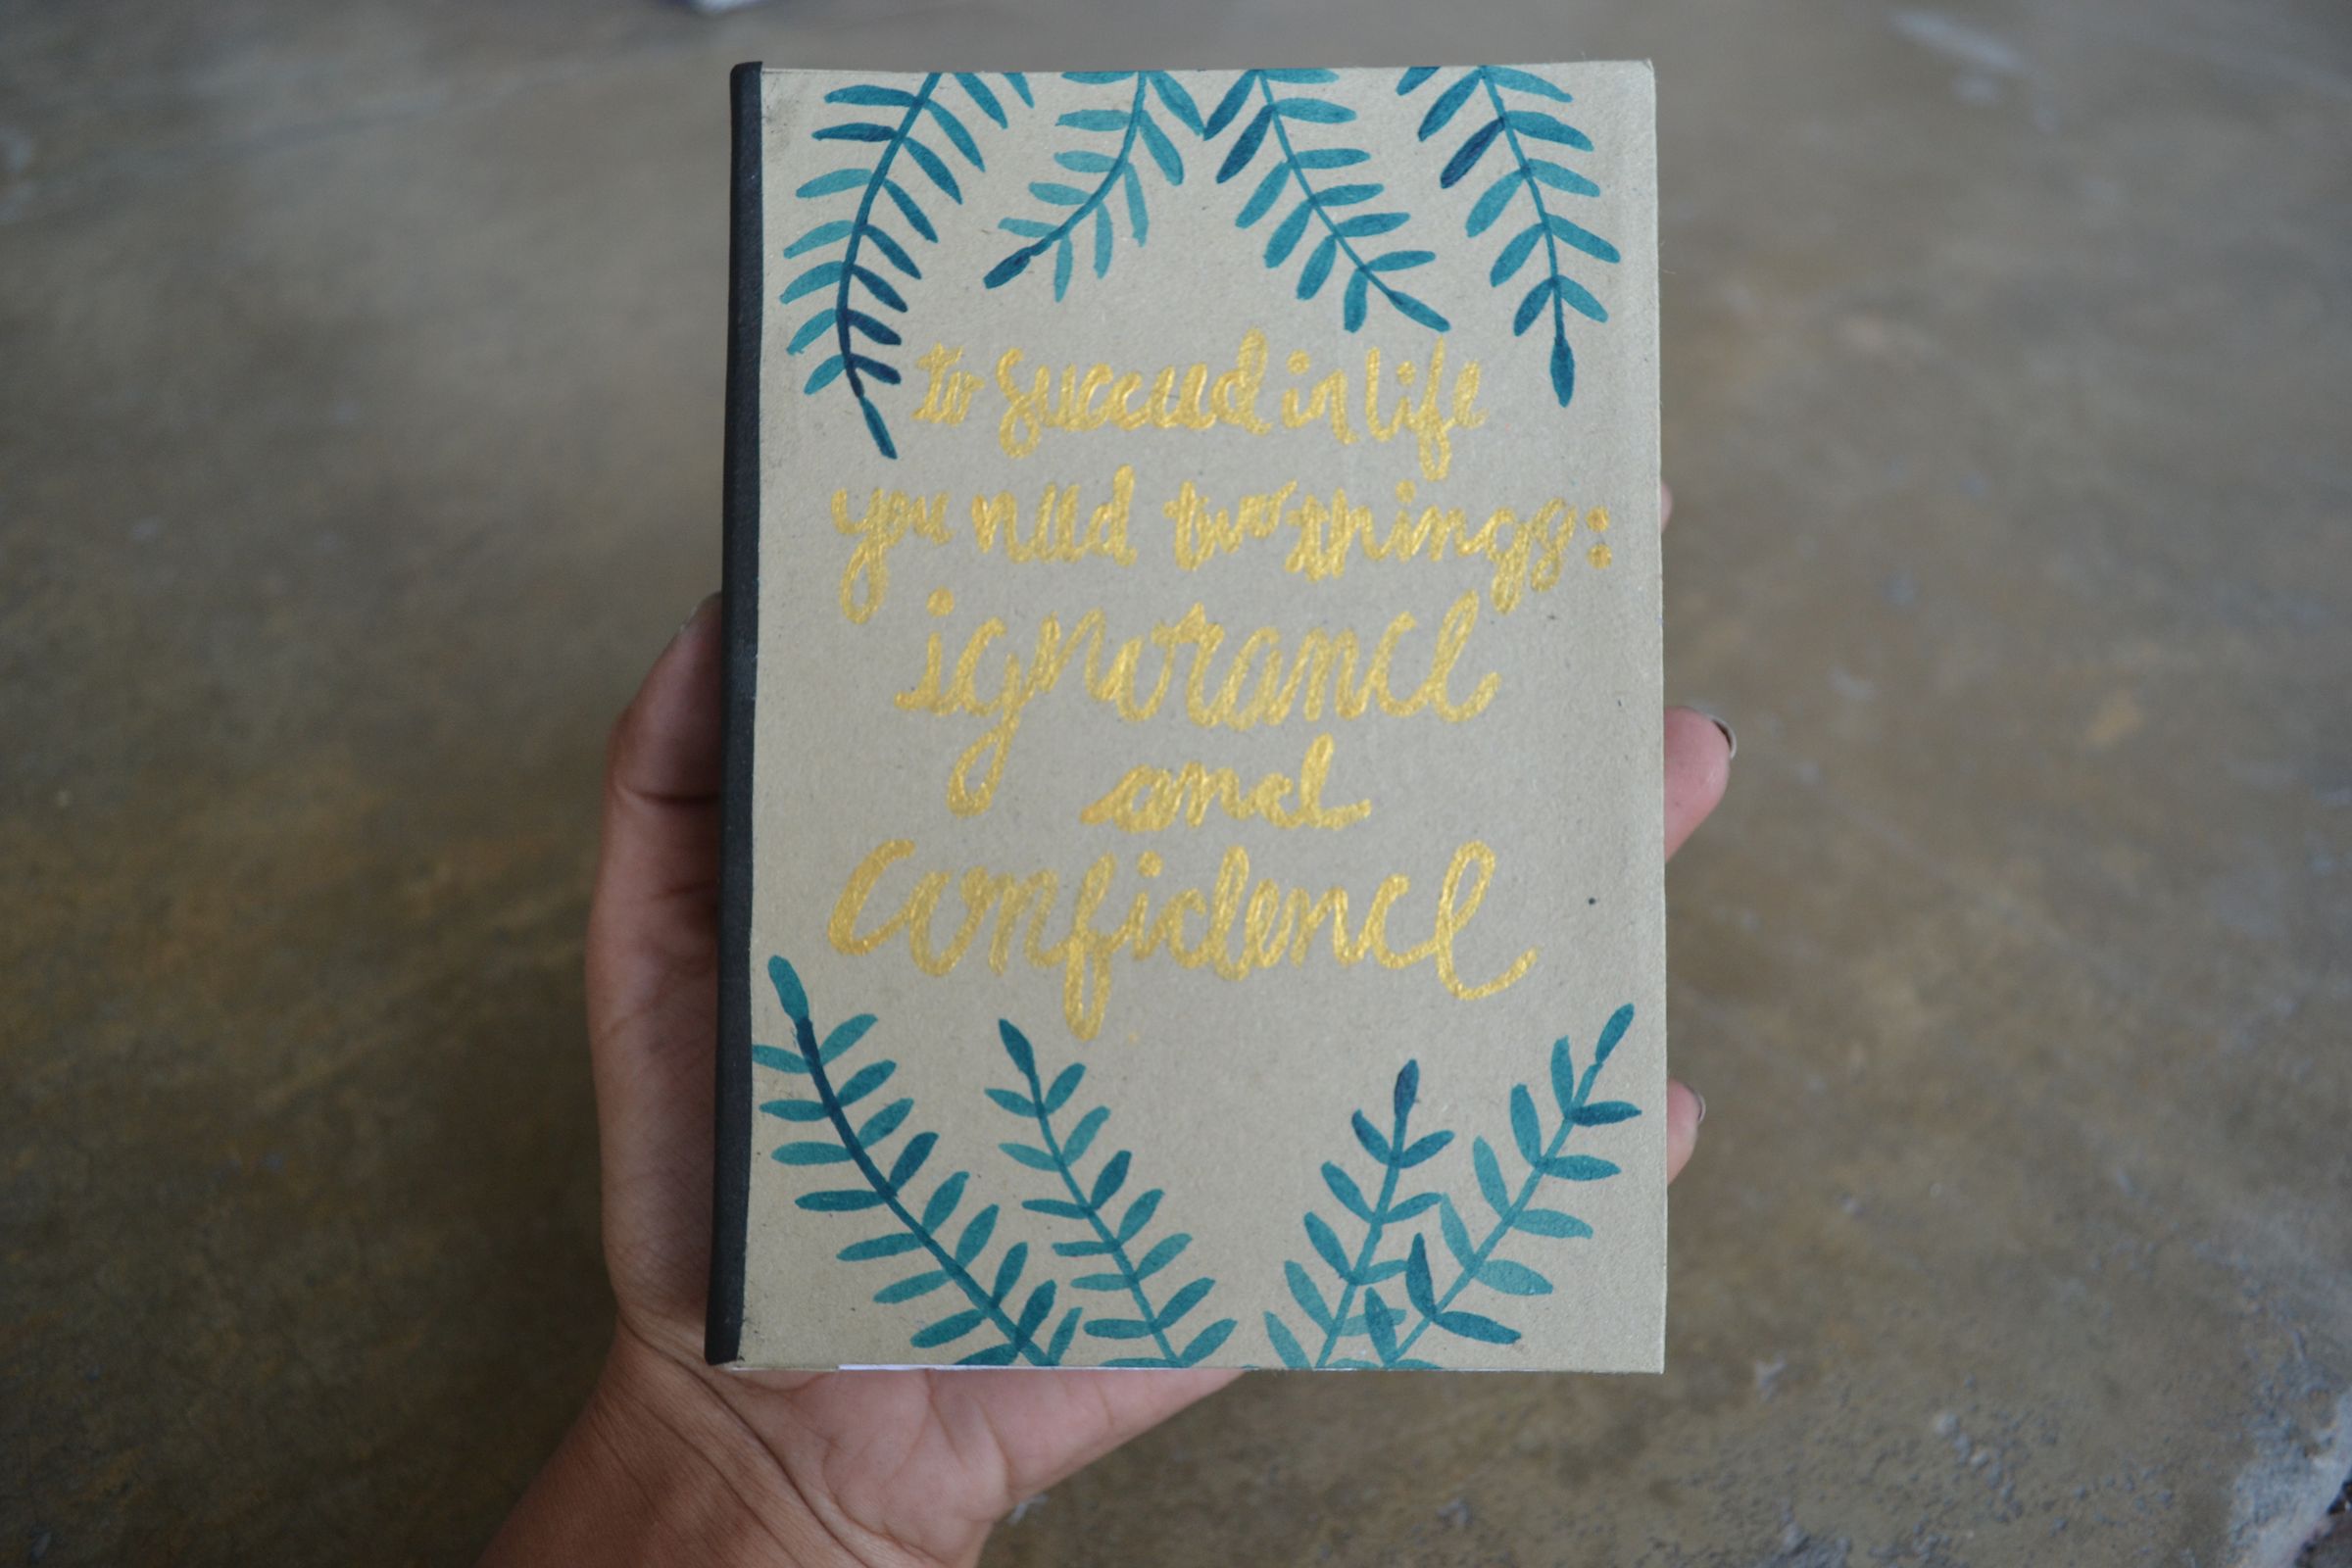 to succeed in life
you need two things:
ignorance
and
confidence